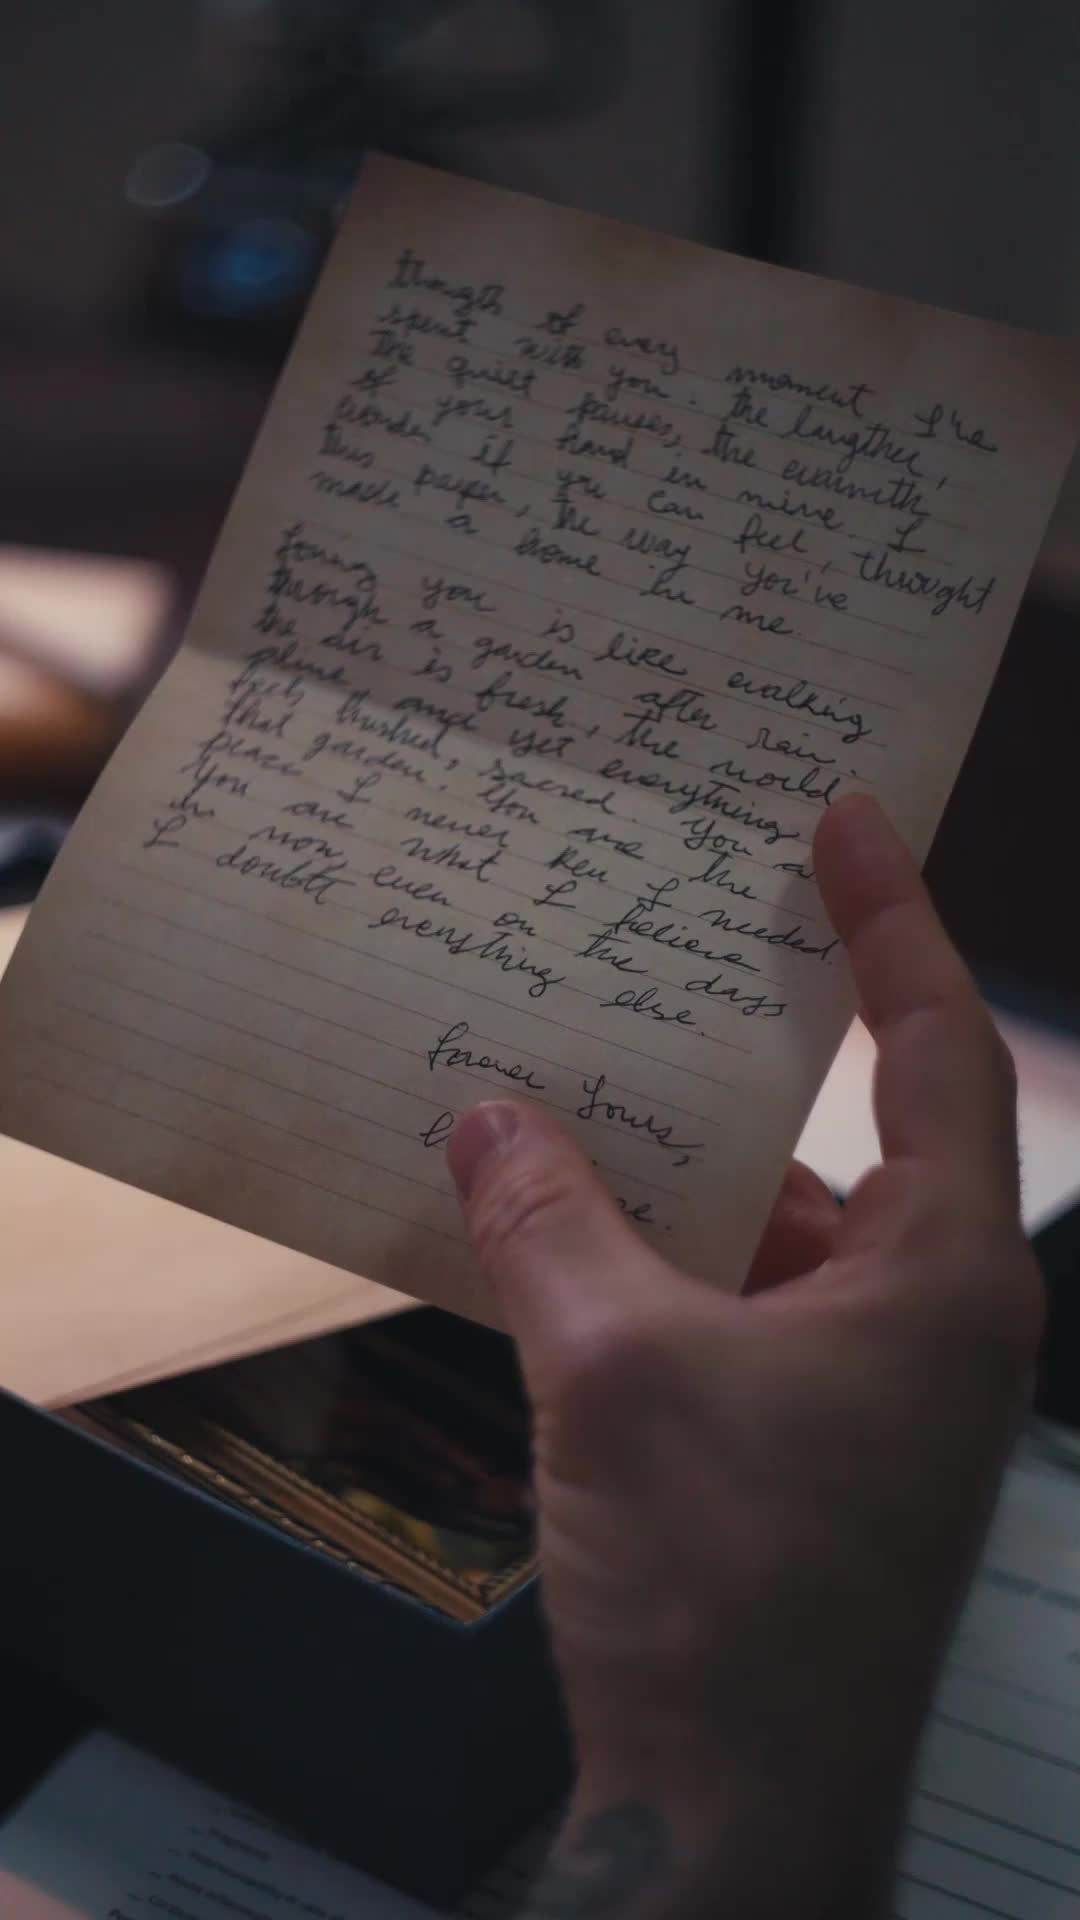 through of every moment I've
spent with you. The laugther,
The quiet pauses, the warmth
of your hand in mine. I
wonder if you can feel, throught
this paper, the way you've
made a home in me.
Loving you is like walking
through a garden after rain.
the air is fresh, the world
and yet everything
hushed, sacred. You a
that garden. You are the
peace I never I needed.
You are what I believe
in now even on the days
I doubt everything else.
forever Yours,